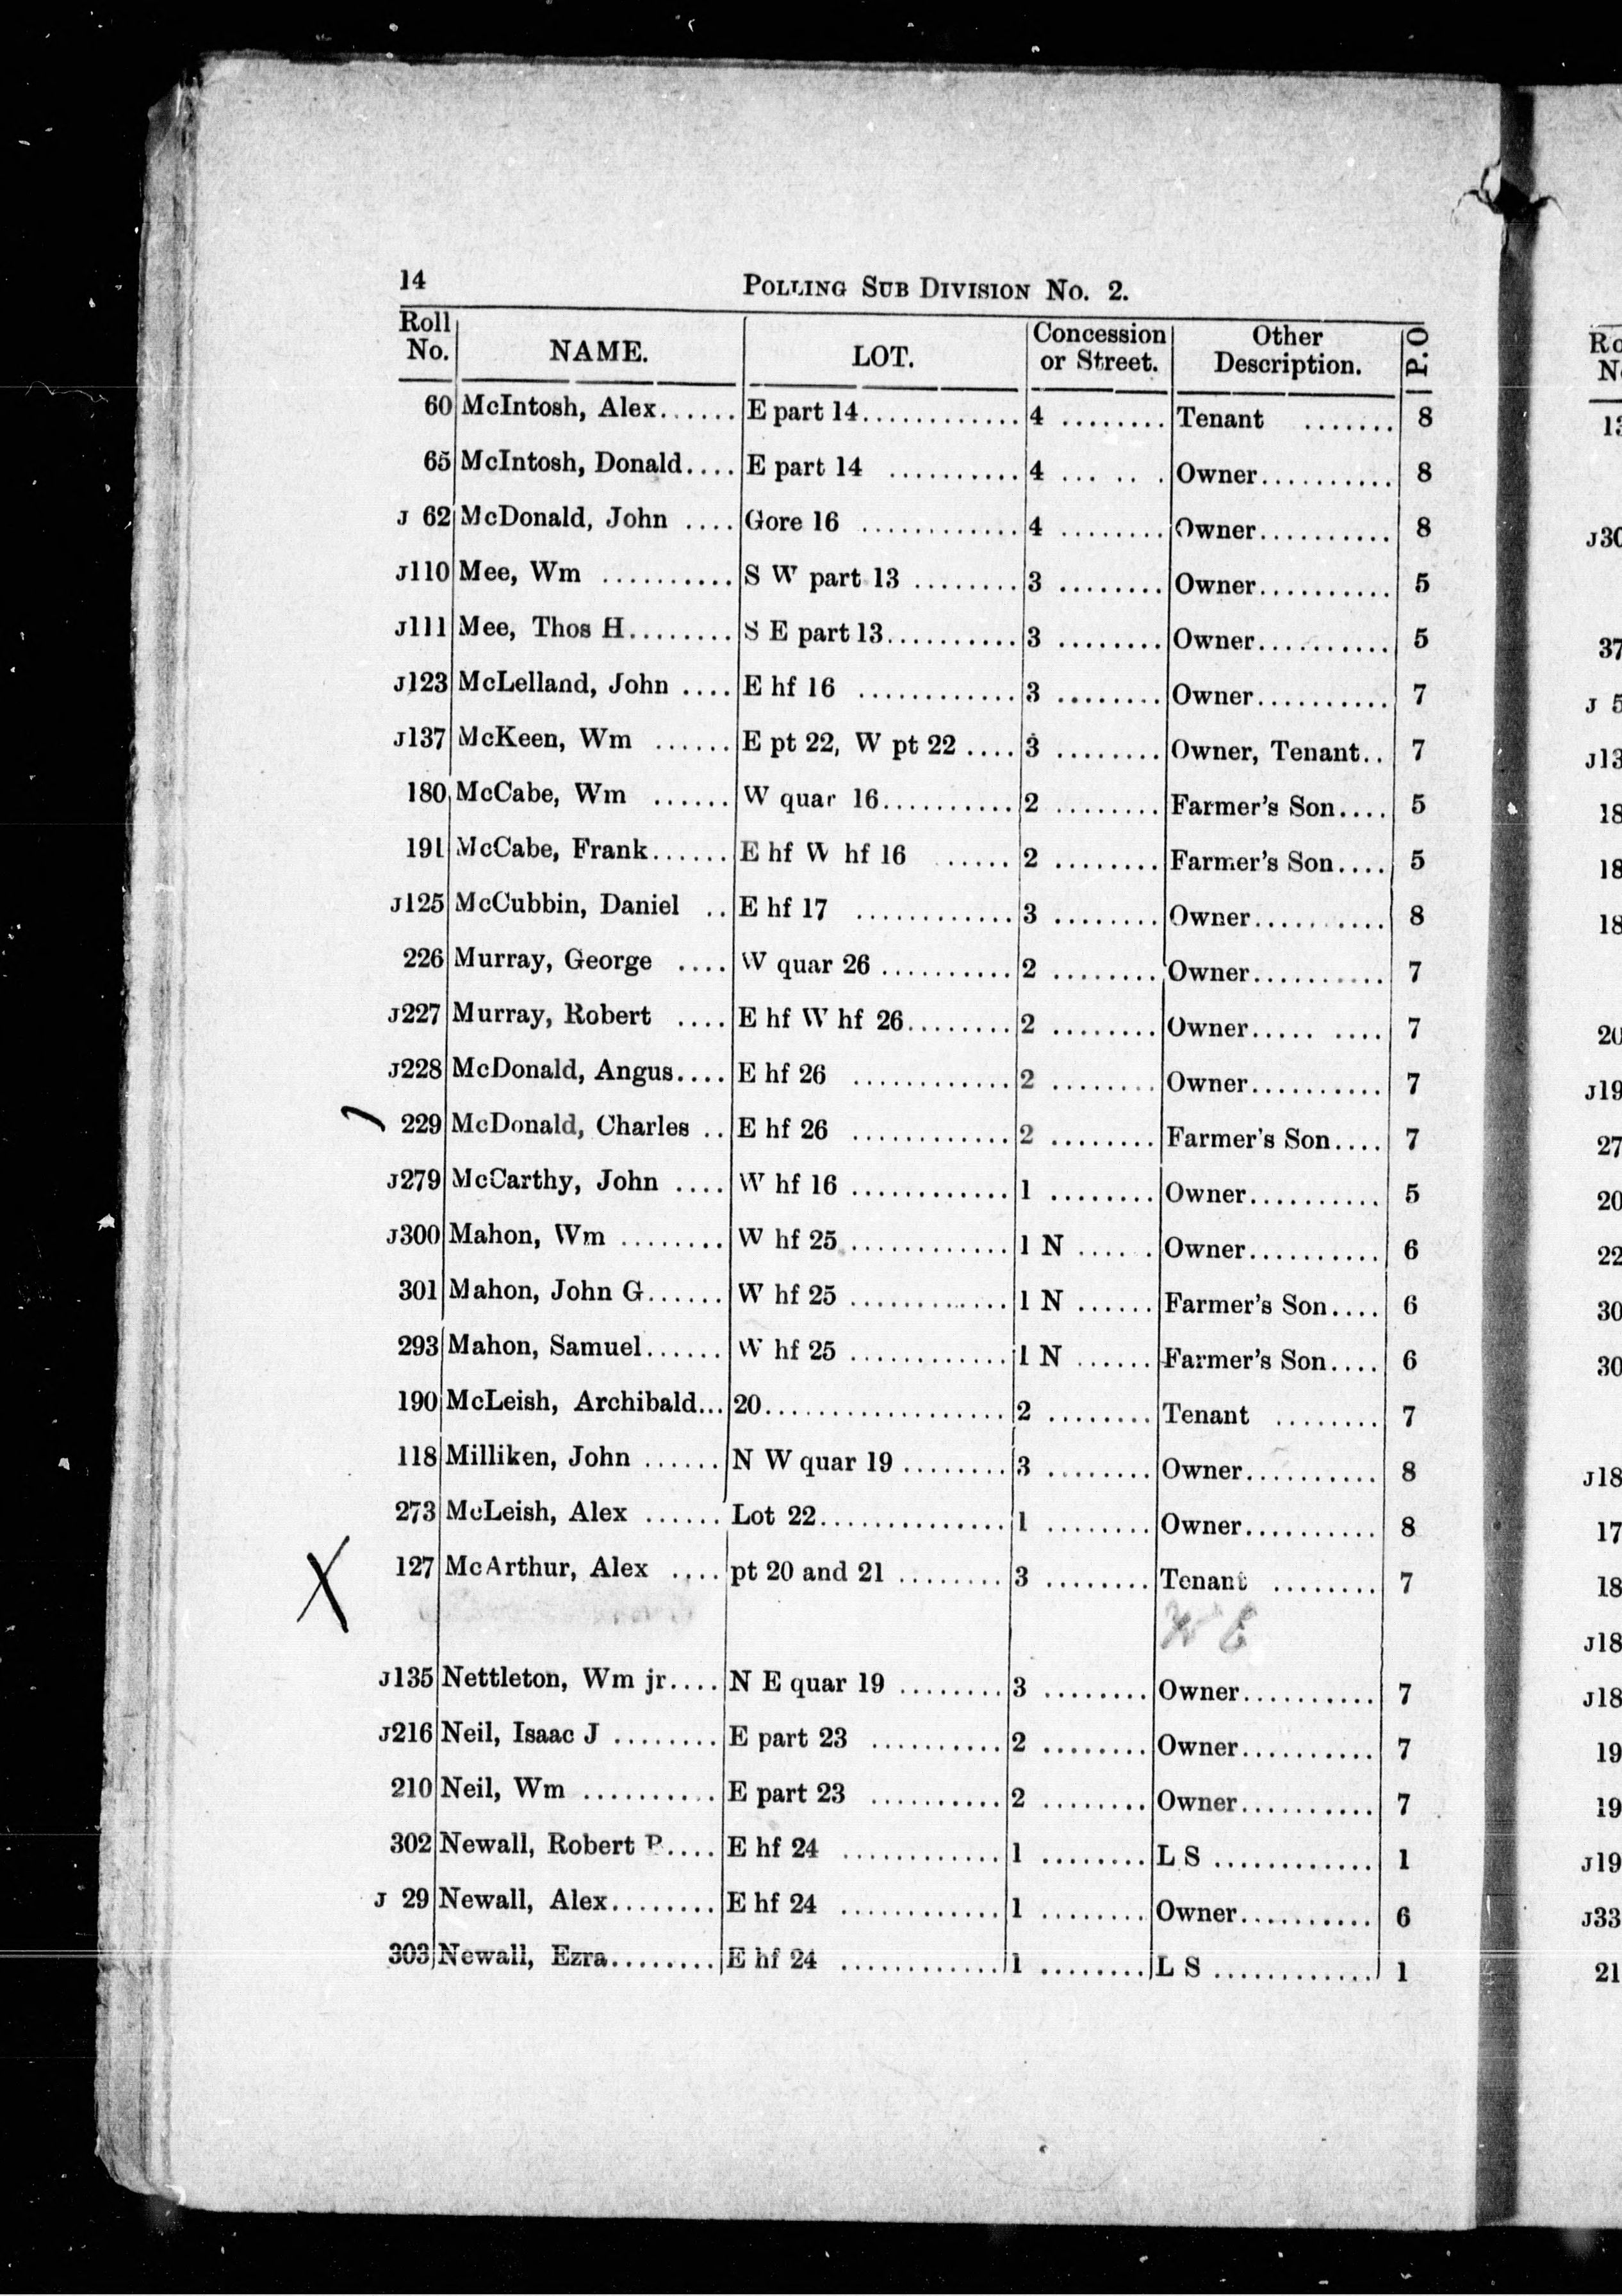 14 POLLING SUB DIVISION No. 2.
Roll No. NAME. LOT. Concession or Street. Other Description. P. O
60 McIntosh, Alex...... E part 14............. 4 ......... Tenant ....... 8
65 McIntosh, Donald.... E part 14 ........... 4 ... .. . Owner.......... 8
J 62 McDonald, John .... Gore 16 ............ 4 ........ Owner.......... 8
J110 Mee, Wm .......... S W part 13 ........ 3 ........ Owner.......... 5
J111 Mee, Thos H........ S E part 13.......... 3 ........ Owner.......... 5
J123 McLelland, John .... E hf 16 ............ 3 ........ Owner.......... 7
J137 McKeen, Wm ...... E pt 22, W pt 22 .... 3 ........ Owner, Tenant.. 7
180 McCabe, Wm ...... W quar 16.......... 2 ........ Farmer's Son.... 5
191 McCabe, Frank...... E hf W hf 16 ..... 2 ........ Farmer's Son.... 5
J125 McCubbin, Daniel .. E hf 17 ............ 3 ........ Owner.......... 8
226 Murray, George .... W quar 26 .......... 2 ........ Owner.......... 7
J227 Murray, Robert .... E hf W hf 26........ 2 ........ Owner..... .... 7
J228 McDonald, Angus.... E hf 26 ............ 2 ........ Owner.......... 7
229 McDonald, Charles .. E hf 26 ............ 2 ........ Farmer's Son.... 7
J279 McCarthy, John .... W hf 16 ............ 1 ........ Owner.......... 5
J300 Mahon, Wm ........ W hf 25 ............ 1 N ...... Owner.......... 6
301 Mahon, John G...... W hf 25 ............ 1 N ...... Farmer's Son.... 6
293 Mahon, Samuel...... W hf 25 ............ 1 N ...... Farmer's Son.... 6
190 McLeish, Archibald... 20.................. 2 ........ Tenant ........ 7
118 Milliken, John ...... N W quar 19 ........ 3 ........ Owner.......... 8
273 McLeish, Alex ...... Lot 22.............. 1 ........ Owner.......... 8
X 127 McArthur, Alex .... pt 20 and 21 ........ 3 ........ Tenant ........ 7
J135 Nettleton, Wm jr.... N E quar 19 ........ 3 ........ Owner.......... 7
J216 Neil, Isaac J ........ E part 23 .......... 2 ........ Owner.......... 7
210 Neil, Wm .......... E part 23 .......... 2 ........ Owner.......... 7
302 Newall, Robert P.... E hf 24 ............ 1 ........ L S ............ 1
J 29 Newall, Alex........ E hf 24 ............ 1 ........ Owner.......... 6
303 Newall, Ezra........ E hf 24 ............ 1 ........ L S ............ 1